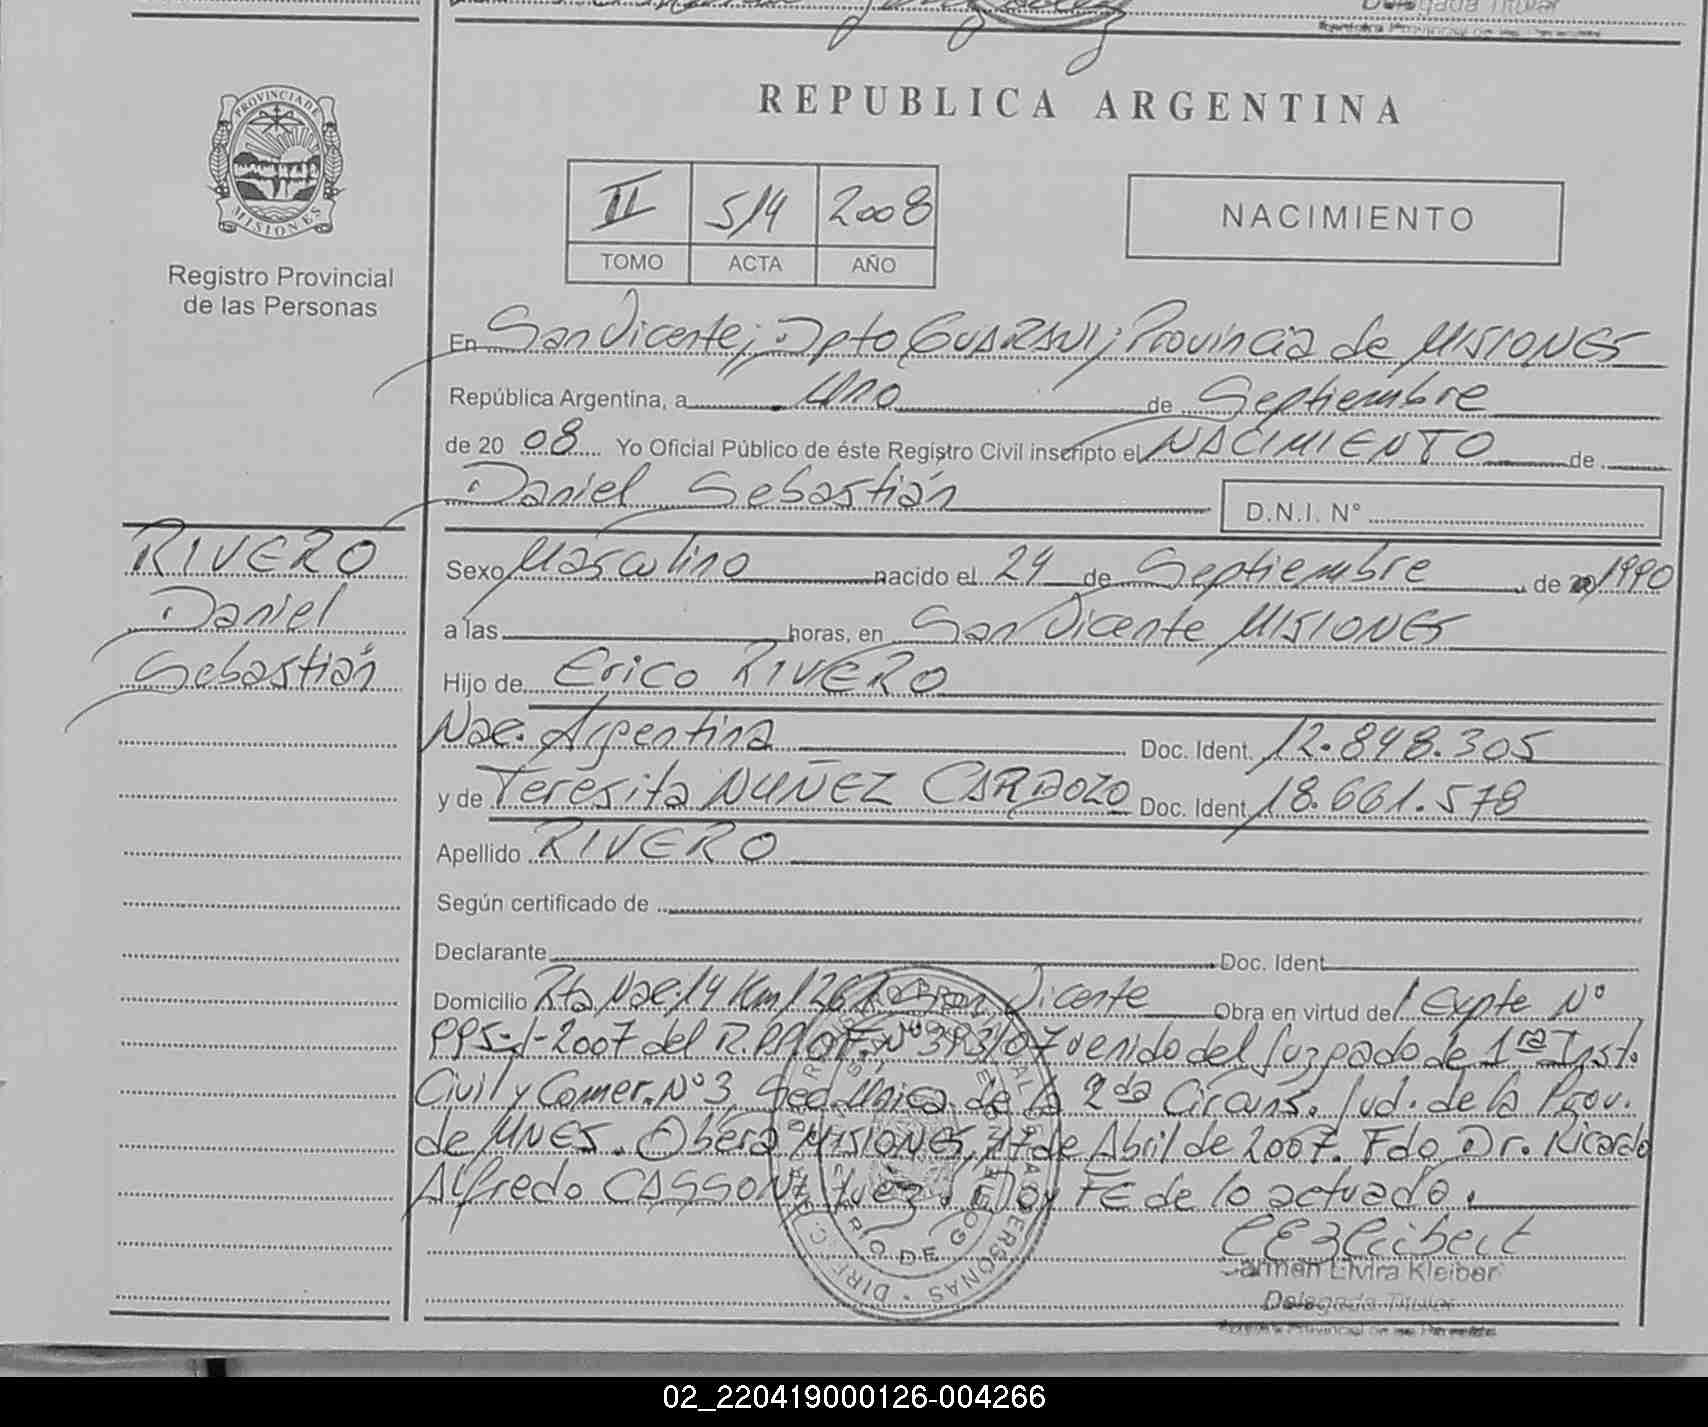 Delegada Titular
REPUBLICA ARGENTINA
PROVINCIA DE
MISIONES
Registro Provincial
de las Personas
II 514 2008
TOMO ACTA AÑO
NACIMIENTO
En San Vicente; Dpto GUARANI; Provincia de MISIONES
República Argentina, a Uno de Septiembre
de 20 08 Yo Oficial Público de éste Registro Civil inscripto el NACIMIENTO de
Daniel Sebastián D.N.I. N°
RIVERO
Daniel
Sebastián
Sexo Masculino nacido el 24 de Septiembre, de 1990
a las horas, en San Vicente MISIONES
Hijo de Erico RIVERO
Nac. Argentina Doc. Ident. 12.848.305
y de Teresita NUÑEZ CARDOZO Doc. Ident. 18.661.578
Apellido RIVERO
Según certificado de
Declarante Doc. Ident.
Domicilio Rta Nac. 14 Km 1261 San Vicente Obra en virtud del Expte N°
995-J-2007 del R.P.P. OF. N° 393/07 venido del Juzgado de 1ra Inst.
Civil y Comer. N° 3 Sec. Unica de la 2da Circuns. Jud. de la Prov.
de MNES. Oberá MISIONES, 17 de Abril de 2007. Fdo Dr. Ricardo
Alfredo CASSONI Juez. Doy FE de lo actuado.
Carmen Elvira Kleiber
Delegada Titular
Registro Provincial de las Personas
02_220419000126-004266